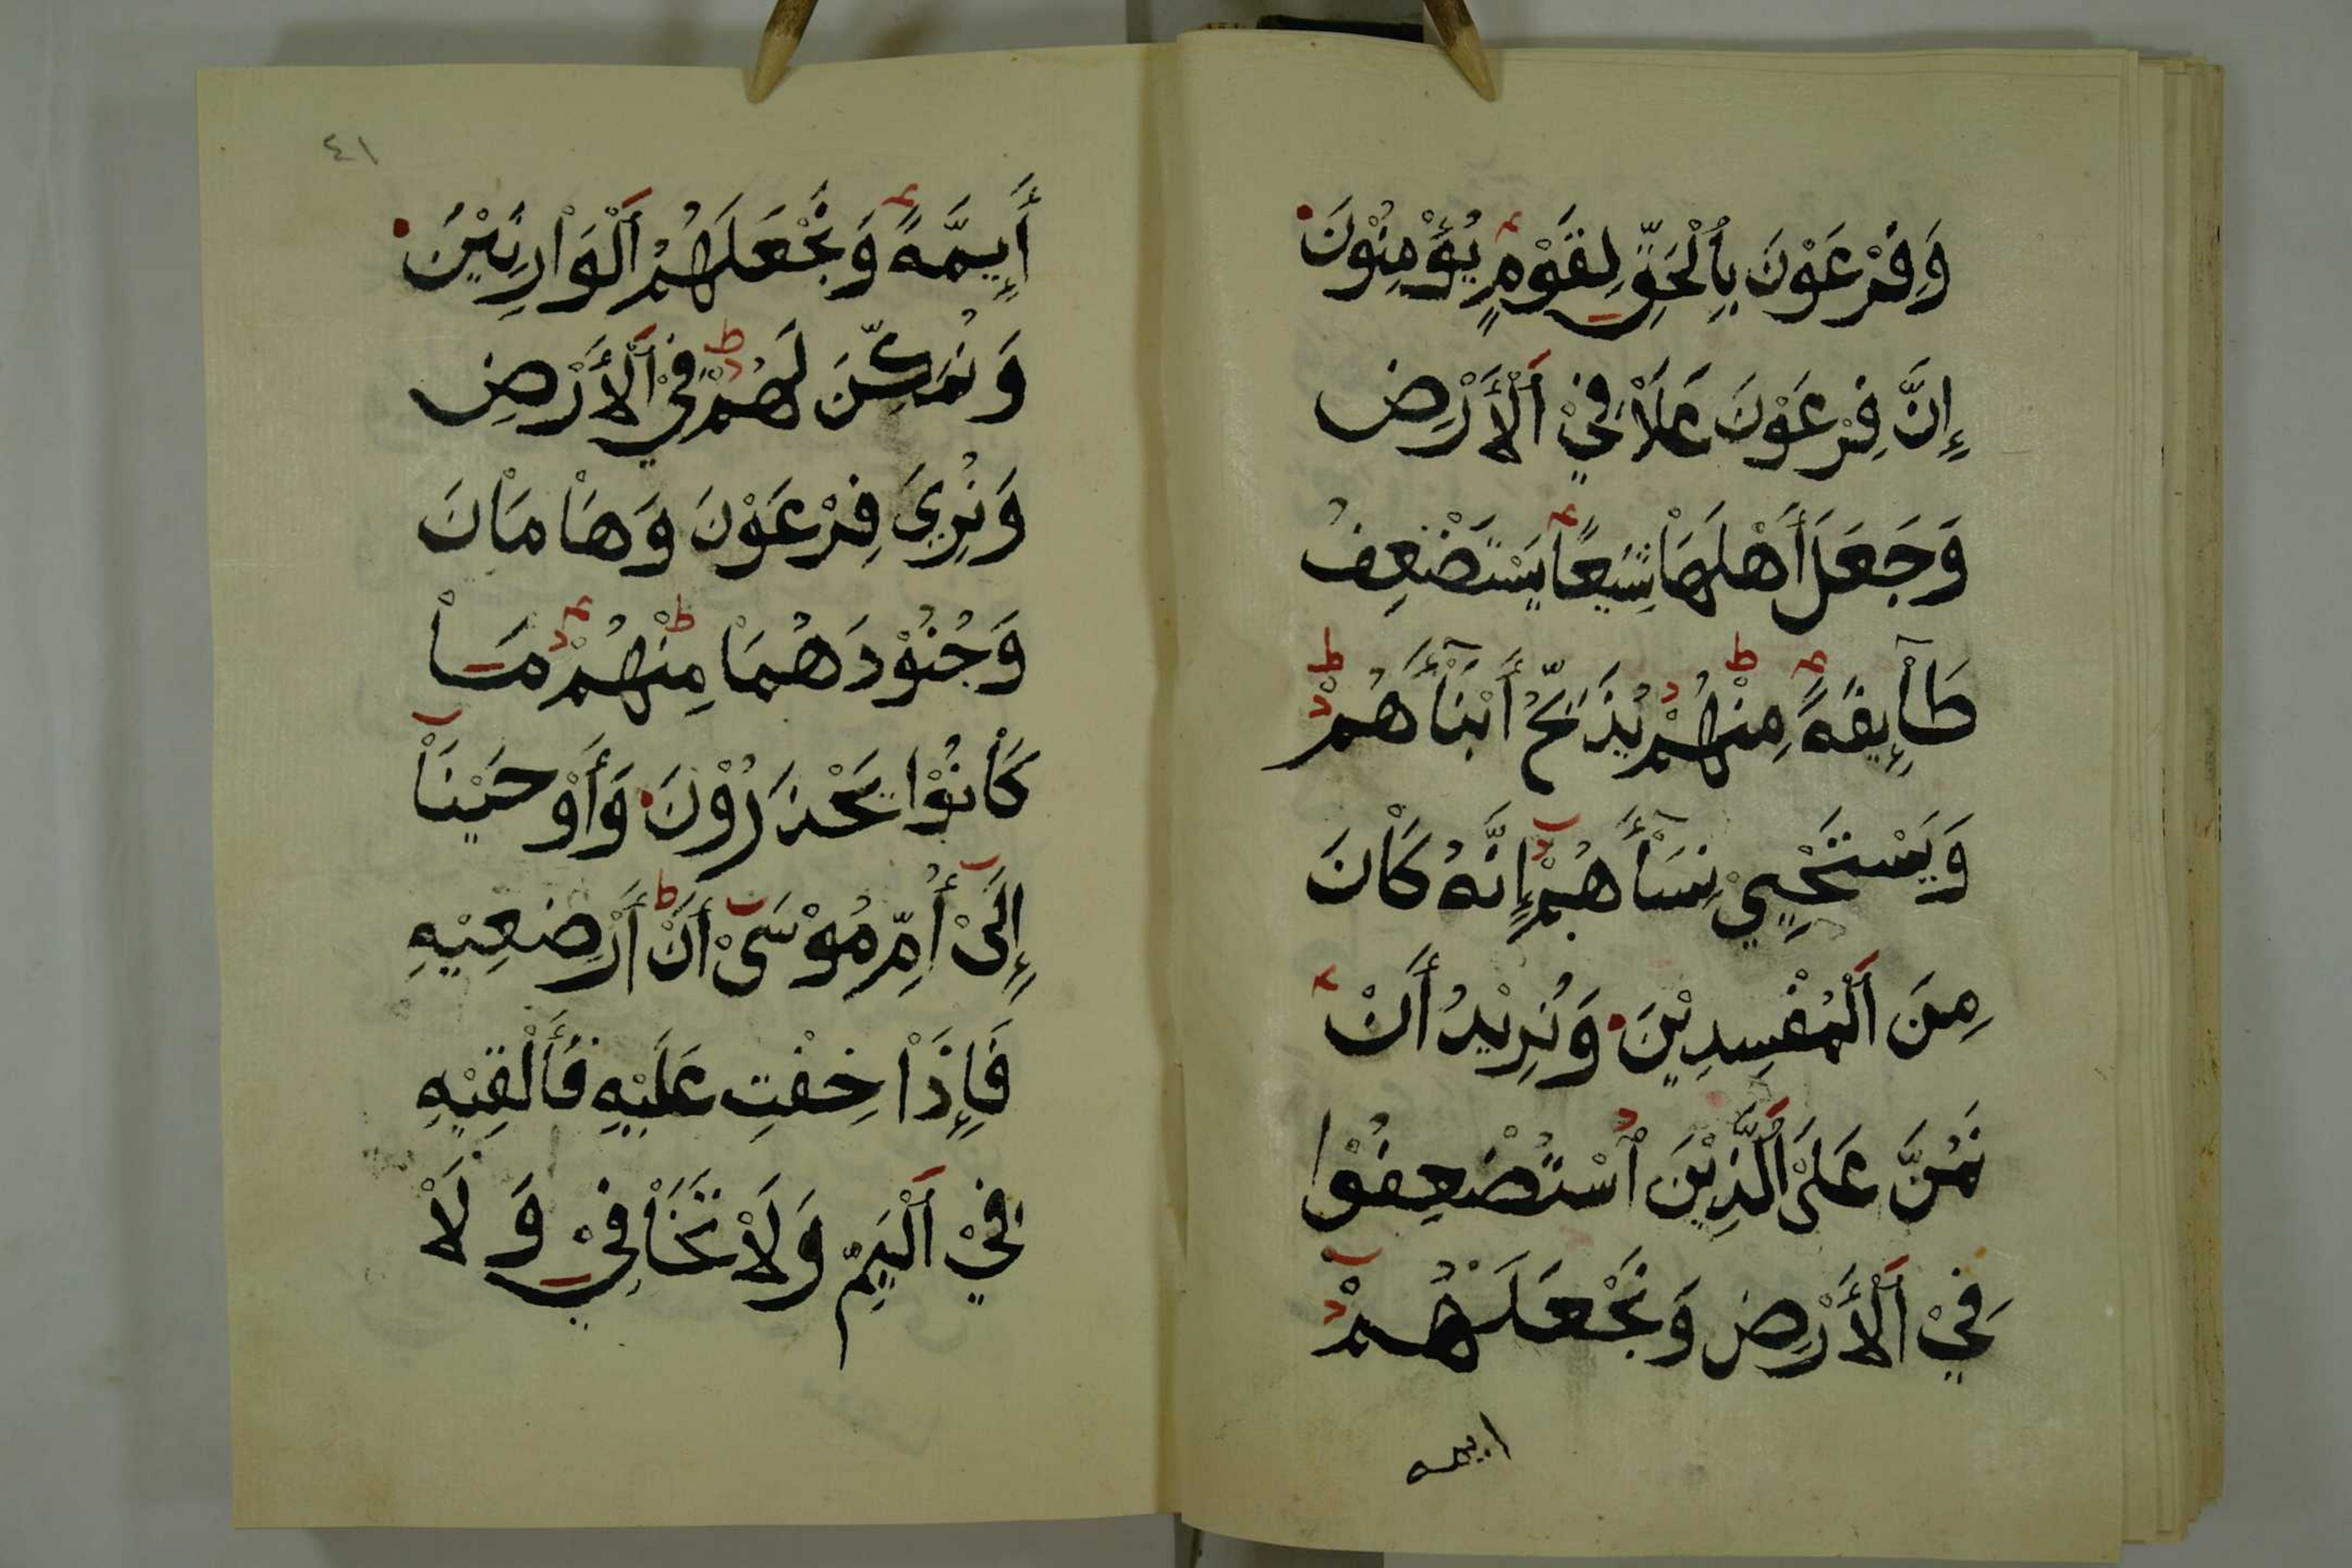 وَفِرْعَوْنَ بِالْحَقِّ لِقَوْمٍ يُؤْمِنُوْنَ
إِنَّ فِرْعَوْنَ عَلَاْ فِيْ اَلْأَرْضِ
وَجَعَلَ أَهْلَهَاْ شِيَعًا يَسْتَضْعِفُ
طَاْئِيفَةً مِنْهُمْ يُذَبِّحُ أَبْنَاْأَهُمْ
وَيَسْتَحْيِيْ نِسَاْأَهُمْ إِنَّهُ كَاْنَ
مِنَ اَلْمُفْسِدِيْنَ وَنُرِيْدُ أَنْ
نَمُنَّ عَلَىْ اَلَّذِيْنَ اُسْتُضْعِفُوْا
فِيْ اَلْأَرْضِ وَنَجْعَلَهُمْ
ايمه
٤١
أَإِيمَّةً وَنَجْعَلَهُمُ اَلْوَاْرِثِيْنَ
وَنُمَكِّنَ لَهُمْ فِيْ اَلْأَرْضِ
وَنُرِيَ فِرْعَوْنَ وَهَاْمَاْنَ
وَجُنُوْدَهُمَاْ مِنْهُمْ مَاْ
كَاْنُوْا يَحْذَرُوْنَ وَأَوْحَيْنَاْ
إِلَىْ أُمِّ مُوْسَىْ أَنْ أَرْضِعِيْهِ
فَإِذَاْ خِفْتِ عَلَيْهِ فَأَلْقِيْهِ
فِيْ اَلْيَمِّ وَلَاْ تَخَاْفِيْ وَلَاْ